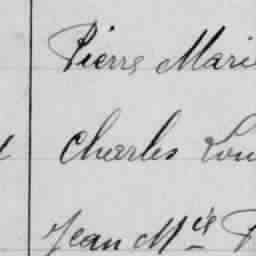 Pierre Marie
Charles Lou
Jean Mie